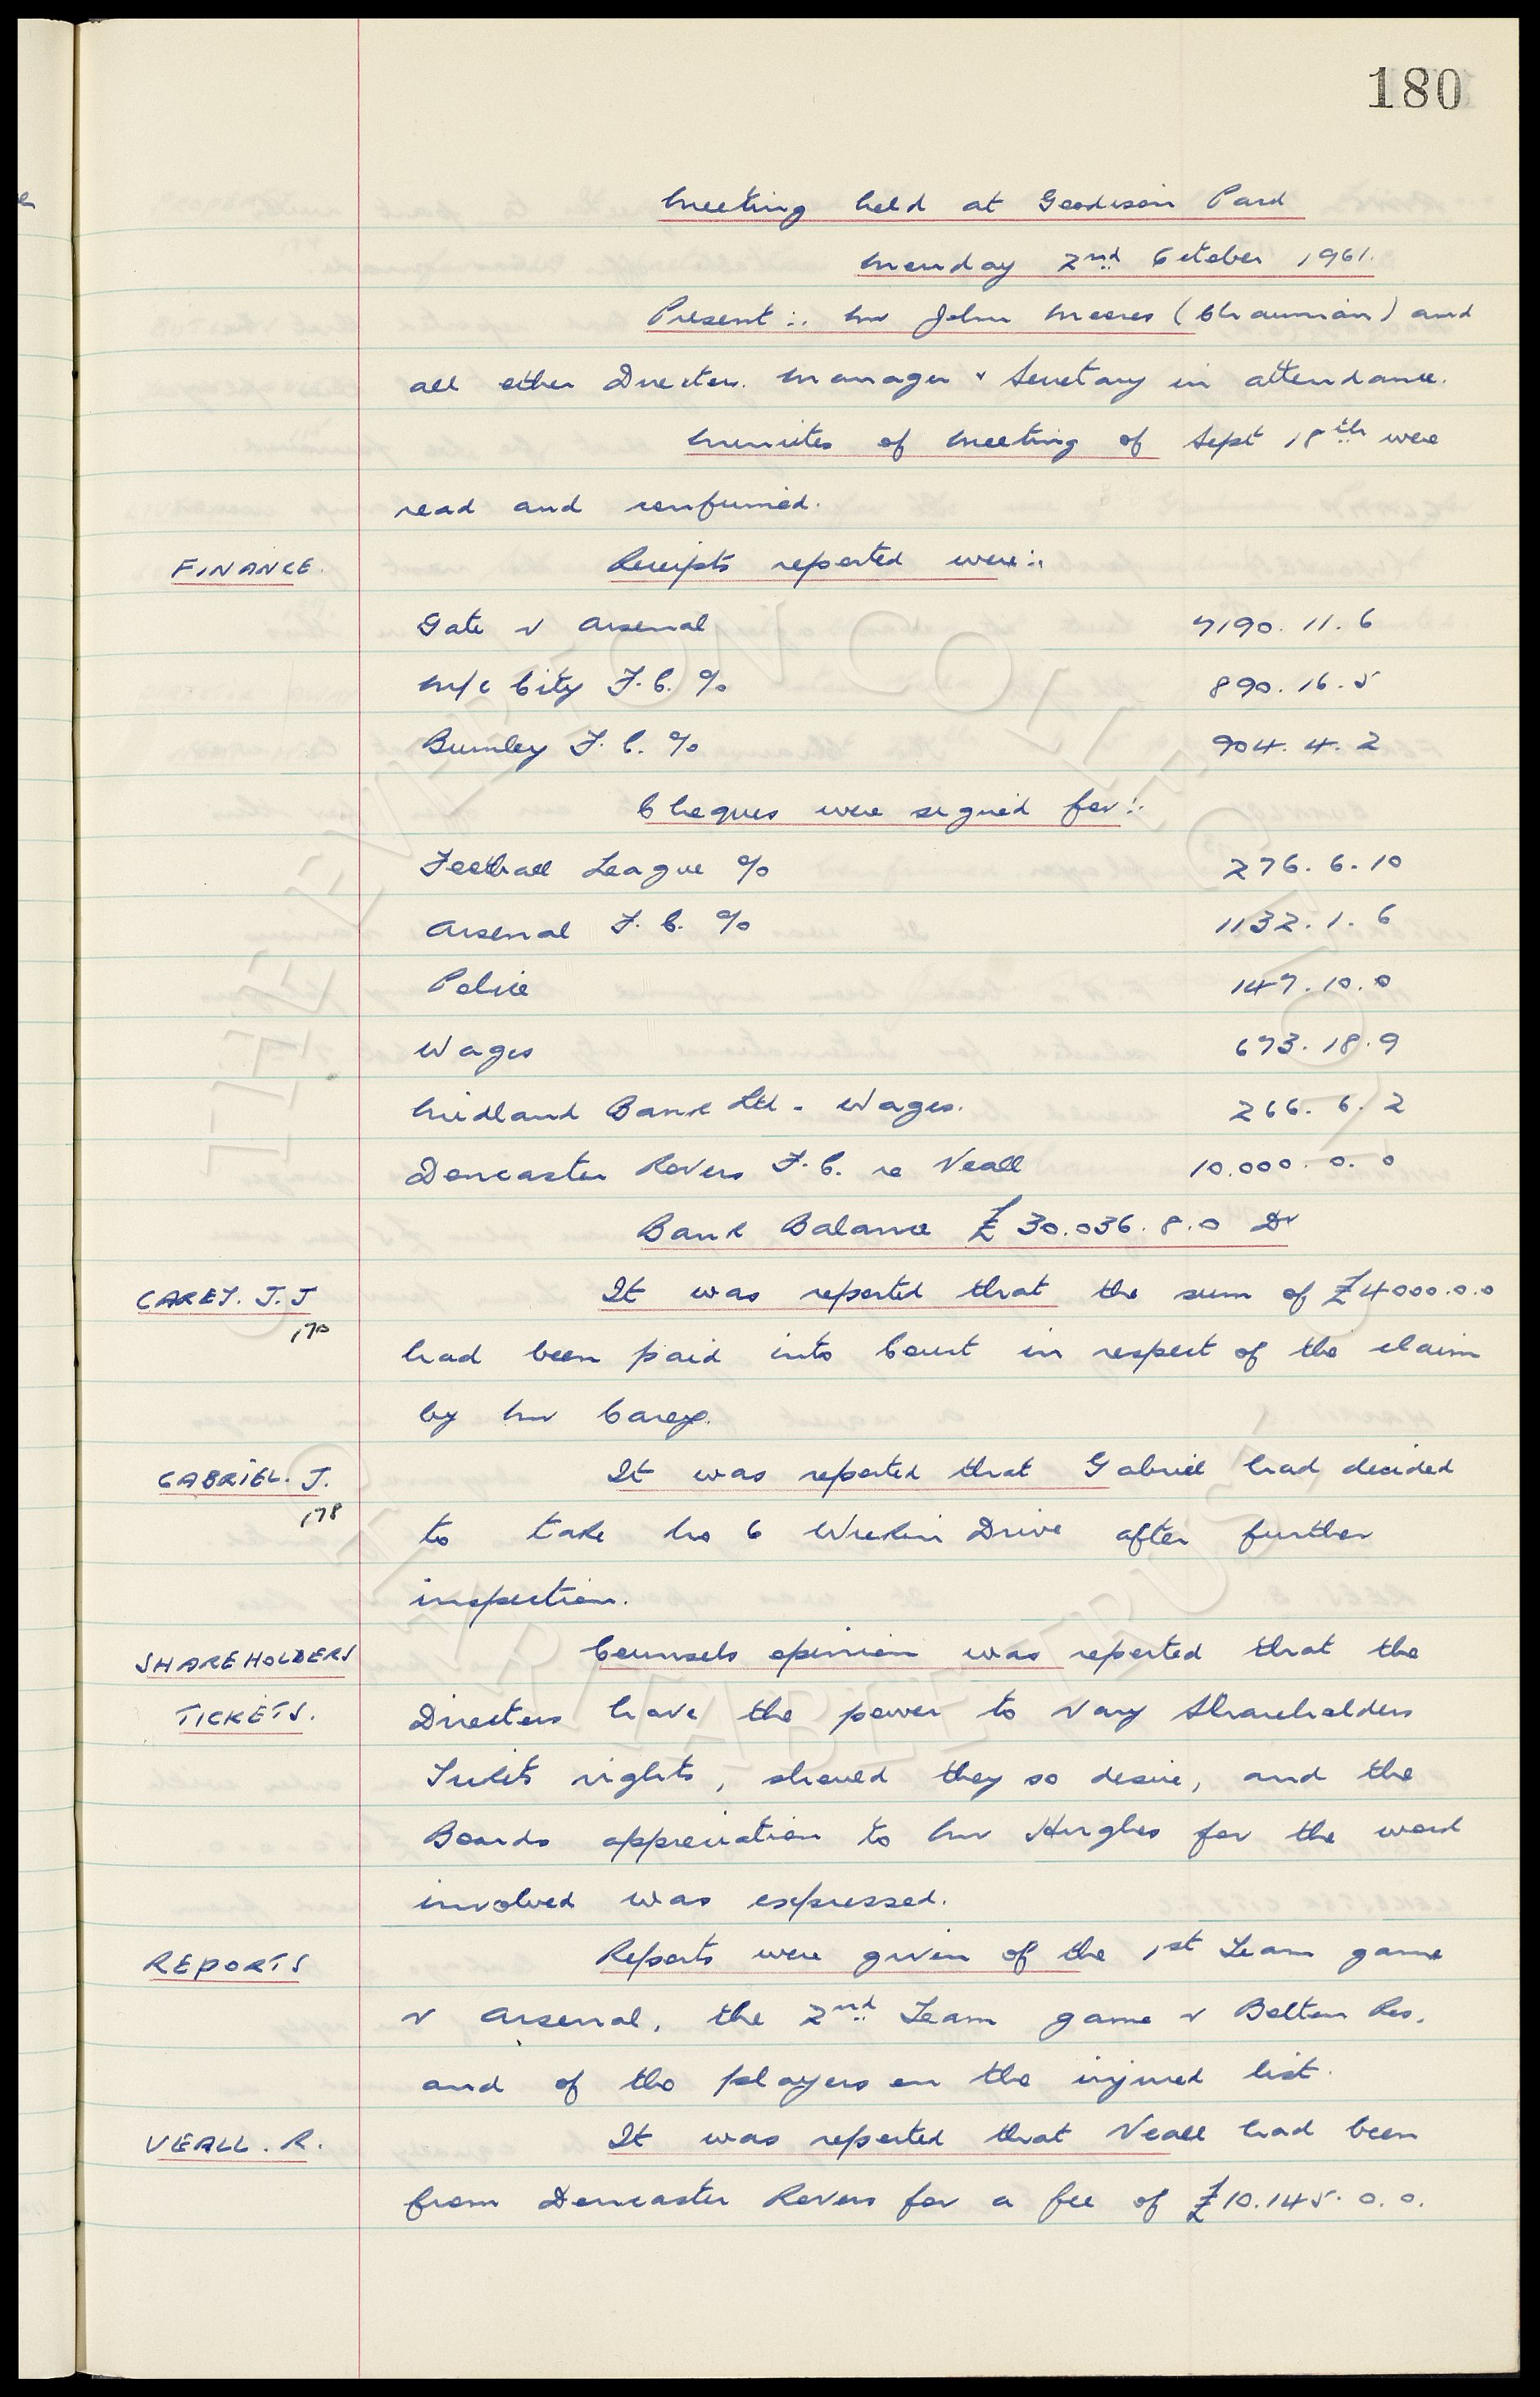 180
Meeting held at Goodison Park
Monday 2nd October 1961.
Present:. Mr John Moores (Chairman) and
all other Directors. Manager & Secretary in attendance.
Minutes of Meeting of Sept 18th were
read and confirmed.
FINANCE. Receipts reported were:.
Gate v Arsenal 7190. 11. 6
M/c City F.C. % 890. 16. 5
Burnley F.C. % 904. 4. 2
Cheques were signed for:.
Football League % 276. 6. 10
Arsenal F.C. % 1132. 1. 6
Police 147. 10. 0
Wages 673. 18. 9
Midland Bank Ltd - Wages. 266. 6. 2
Doncaster Rovers F.C. re Veall 10.000. 0. 0
Bank Balance £30.036. 8. 0 Dr
CAREY. J.J It was reported that the sum of £4000.0.0
170
had been paid into Court in respect of the claim
by Mr Carey.
GABRIEL. J. It was reported that Gabriel had decided
178
to take No 6 Wrekin Drive after further
inspection.
SHAREHOLDERS Counsels opinion was reported that the
TICKETS. Directors have the power to vary Shareholders
Tickets rights, should they so desire, and the
Boards appreciation to Mr Hughes for the work
involved was expressed.
REPORTS Reports were given of the 1st Team game
v Arsenal, the 2nd Team game v Bolton Res.
and of the players on the injured list.
VEALL. R. It was reported that Veall had been
from Doncaster Rovers for a fee of £10.145. 0. 0.